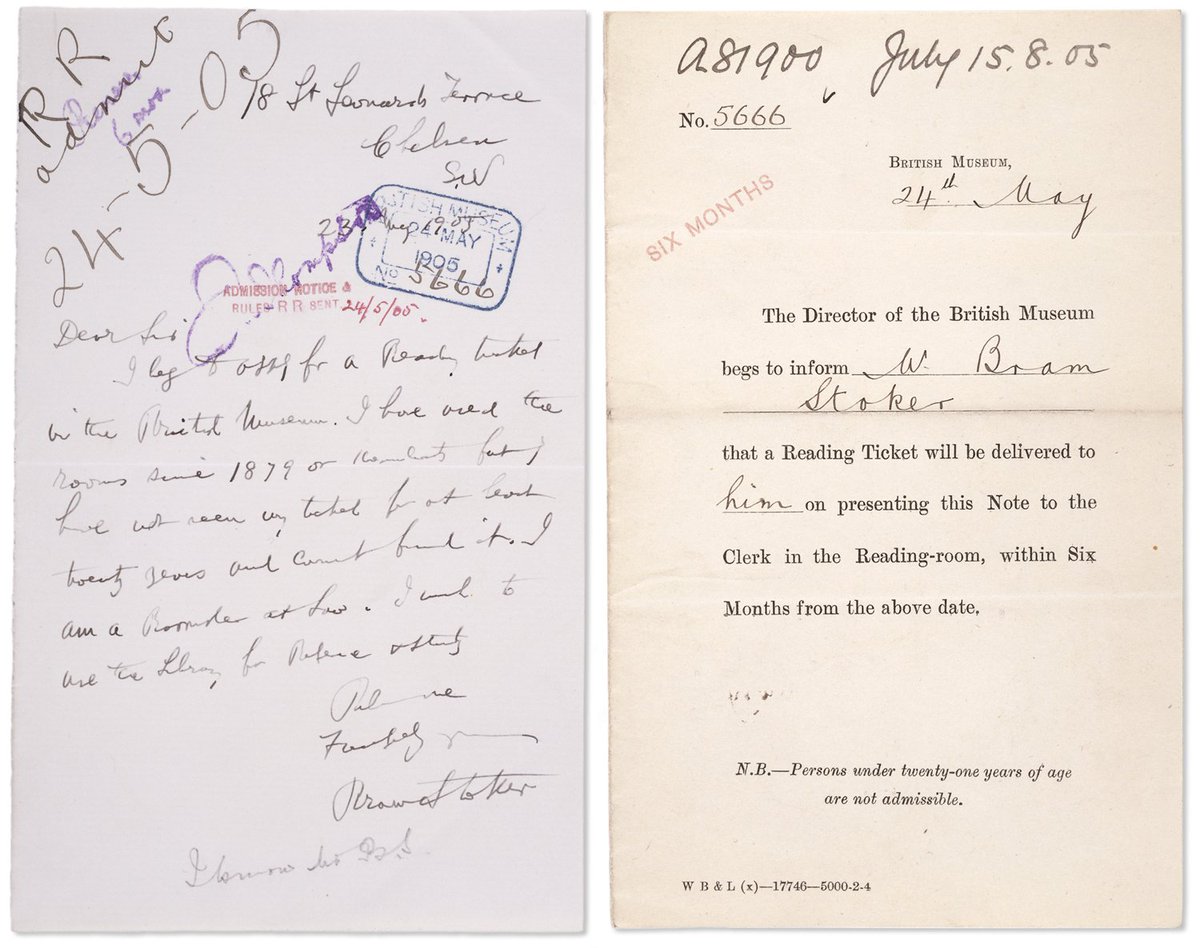 R R
admit
24-5-05
6 mos
18 St Leonards Terrace
Chelsea
S.W
23 May 1905
BRITISH MUSEUM
24 MAY
1905
No 5666
ADMISSION NOTICE &
RULES R R SENT 24/5/05.
Dear Sir
I beg to apply for a Reading ticket
in the British Museum. I have used the
rooms since 1879 or thereabouts but I
have not seen my ticket for at least
twenty years and cannot find it. I
am a Barrister at Law. I wish to
use the Library for Reference & study
Believe me
Faithfully yours
Bram Stoker
I know Mr B. S.
A81900 July 15.8.05
No. 5666
BRITISH MUSEUM,
24th May
SIX MONTHS
The Director of the British Museum
begs to inform W. Bram
Stoker
that a Reading Ticket will be delivered to
him on presenting this Note to the
Clerk in the Reading-room, within Six
Months from the above date.
N.B.—Persons under twenty-one years of age
are not admissible.
W B & L (x)—17746—5000-2-4